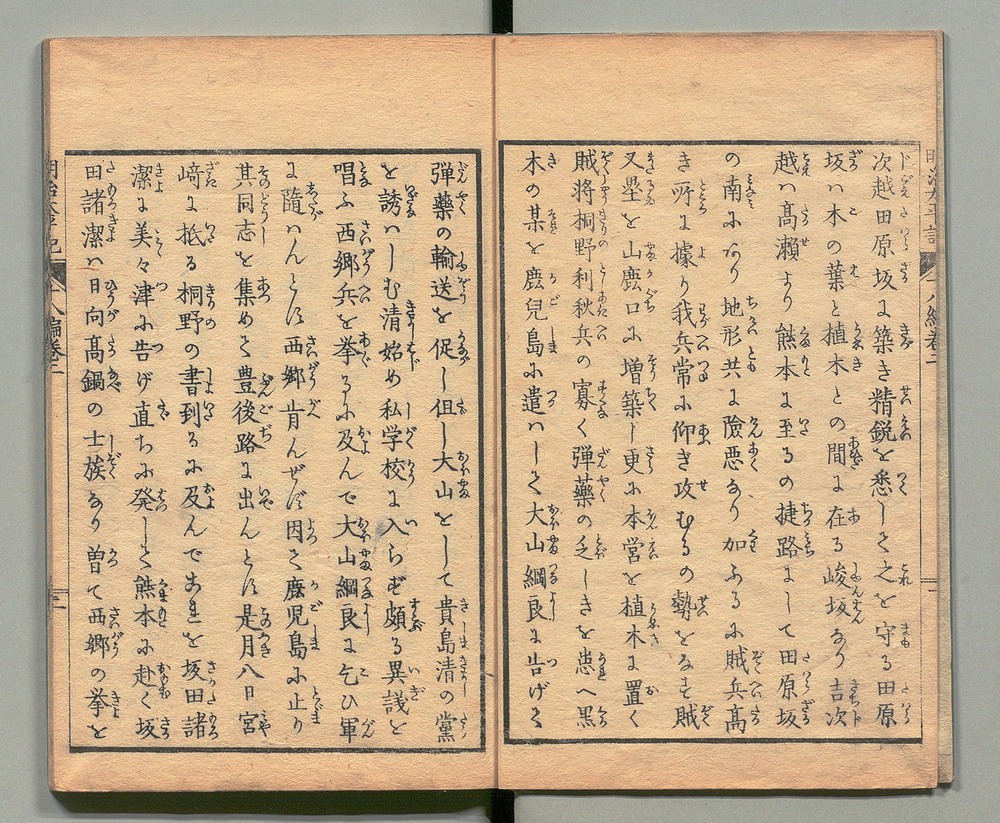 次越田原坂に築き精鋭を悉して之を守る田原
坂ハ木の葉と植木との間に在る峻坂なり吉次
越ハ髙瀬より熊本に至るの捷路にして田原坂
の南にあり地形共に險悪なり加ふるに賊兵髙
き所に據り我兵常に仰ぎ攻むるの勢をなす賊
又塁を山鹿口に増築し更に本営を植木に置く
賊将桐野利秋兵の寡く弾藥の乏しきを患へ黒
木の某を鹿児島に遣ハして大山綱良に告げて
弾藥の輸送を促し但し大山をして貴島清の黨
を誘ハしむ清始め私学校に入らず頗る異議を
唱ふ西郷兵を挙るに及んで大山綱良に乞ひ軍
に隨ハんとす西郷肯んぜず因て鹿児島に止り
其同志を集めて豊後路に出んとす是月八日宮
﨑に抵る桐野の書到るに及んで之を坂田諸
潔に美々津に告げ直ちに発して熊本に赴く坂
田諸潔ハ日向髙鍋の士族なり曽て西郷の挙を
明治太平記 八編巻二 二